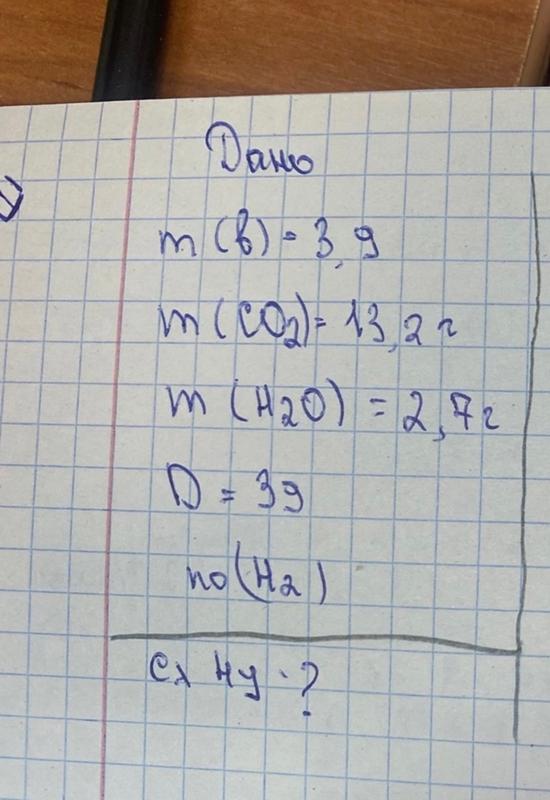 Дано
m (в) = 3,9
m (CO2) = 13,2 г
m (H2O) = 2,7 г
D = 39
по (H2)
Cx Hy - ?